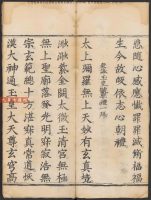 惡隨心感應懺罪罪滅祈福福
生今故皈依志心朝禮
太上彌羅無上天妙有玄真境
渺渺紫金闕太微玉清宮無極
無上聖廓落發光明寂寂浩無
宗玄範總十方湛寂真常道恢
漠大神通玉皇大天尊玄穹高